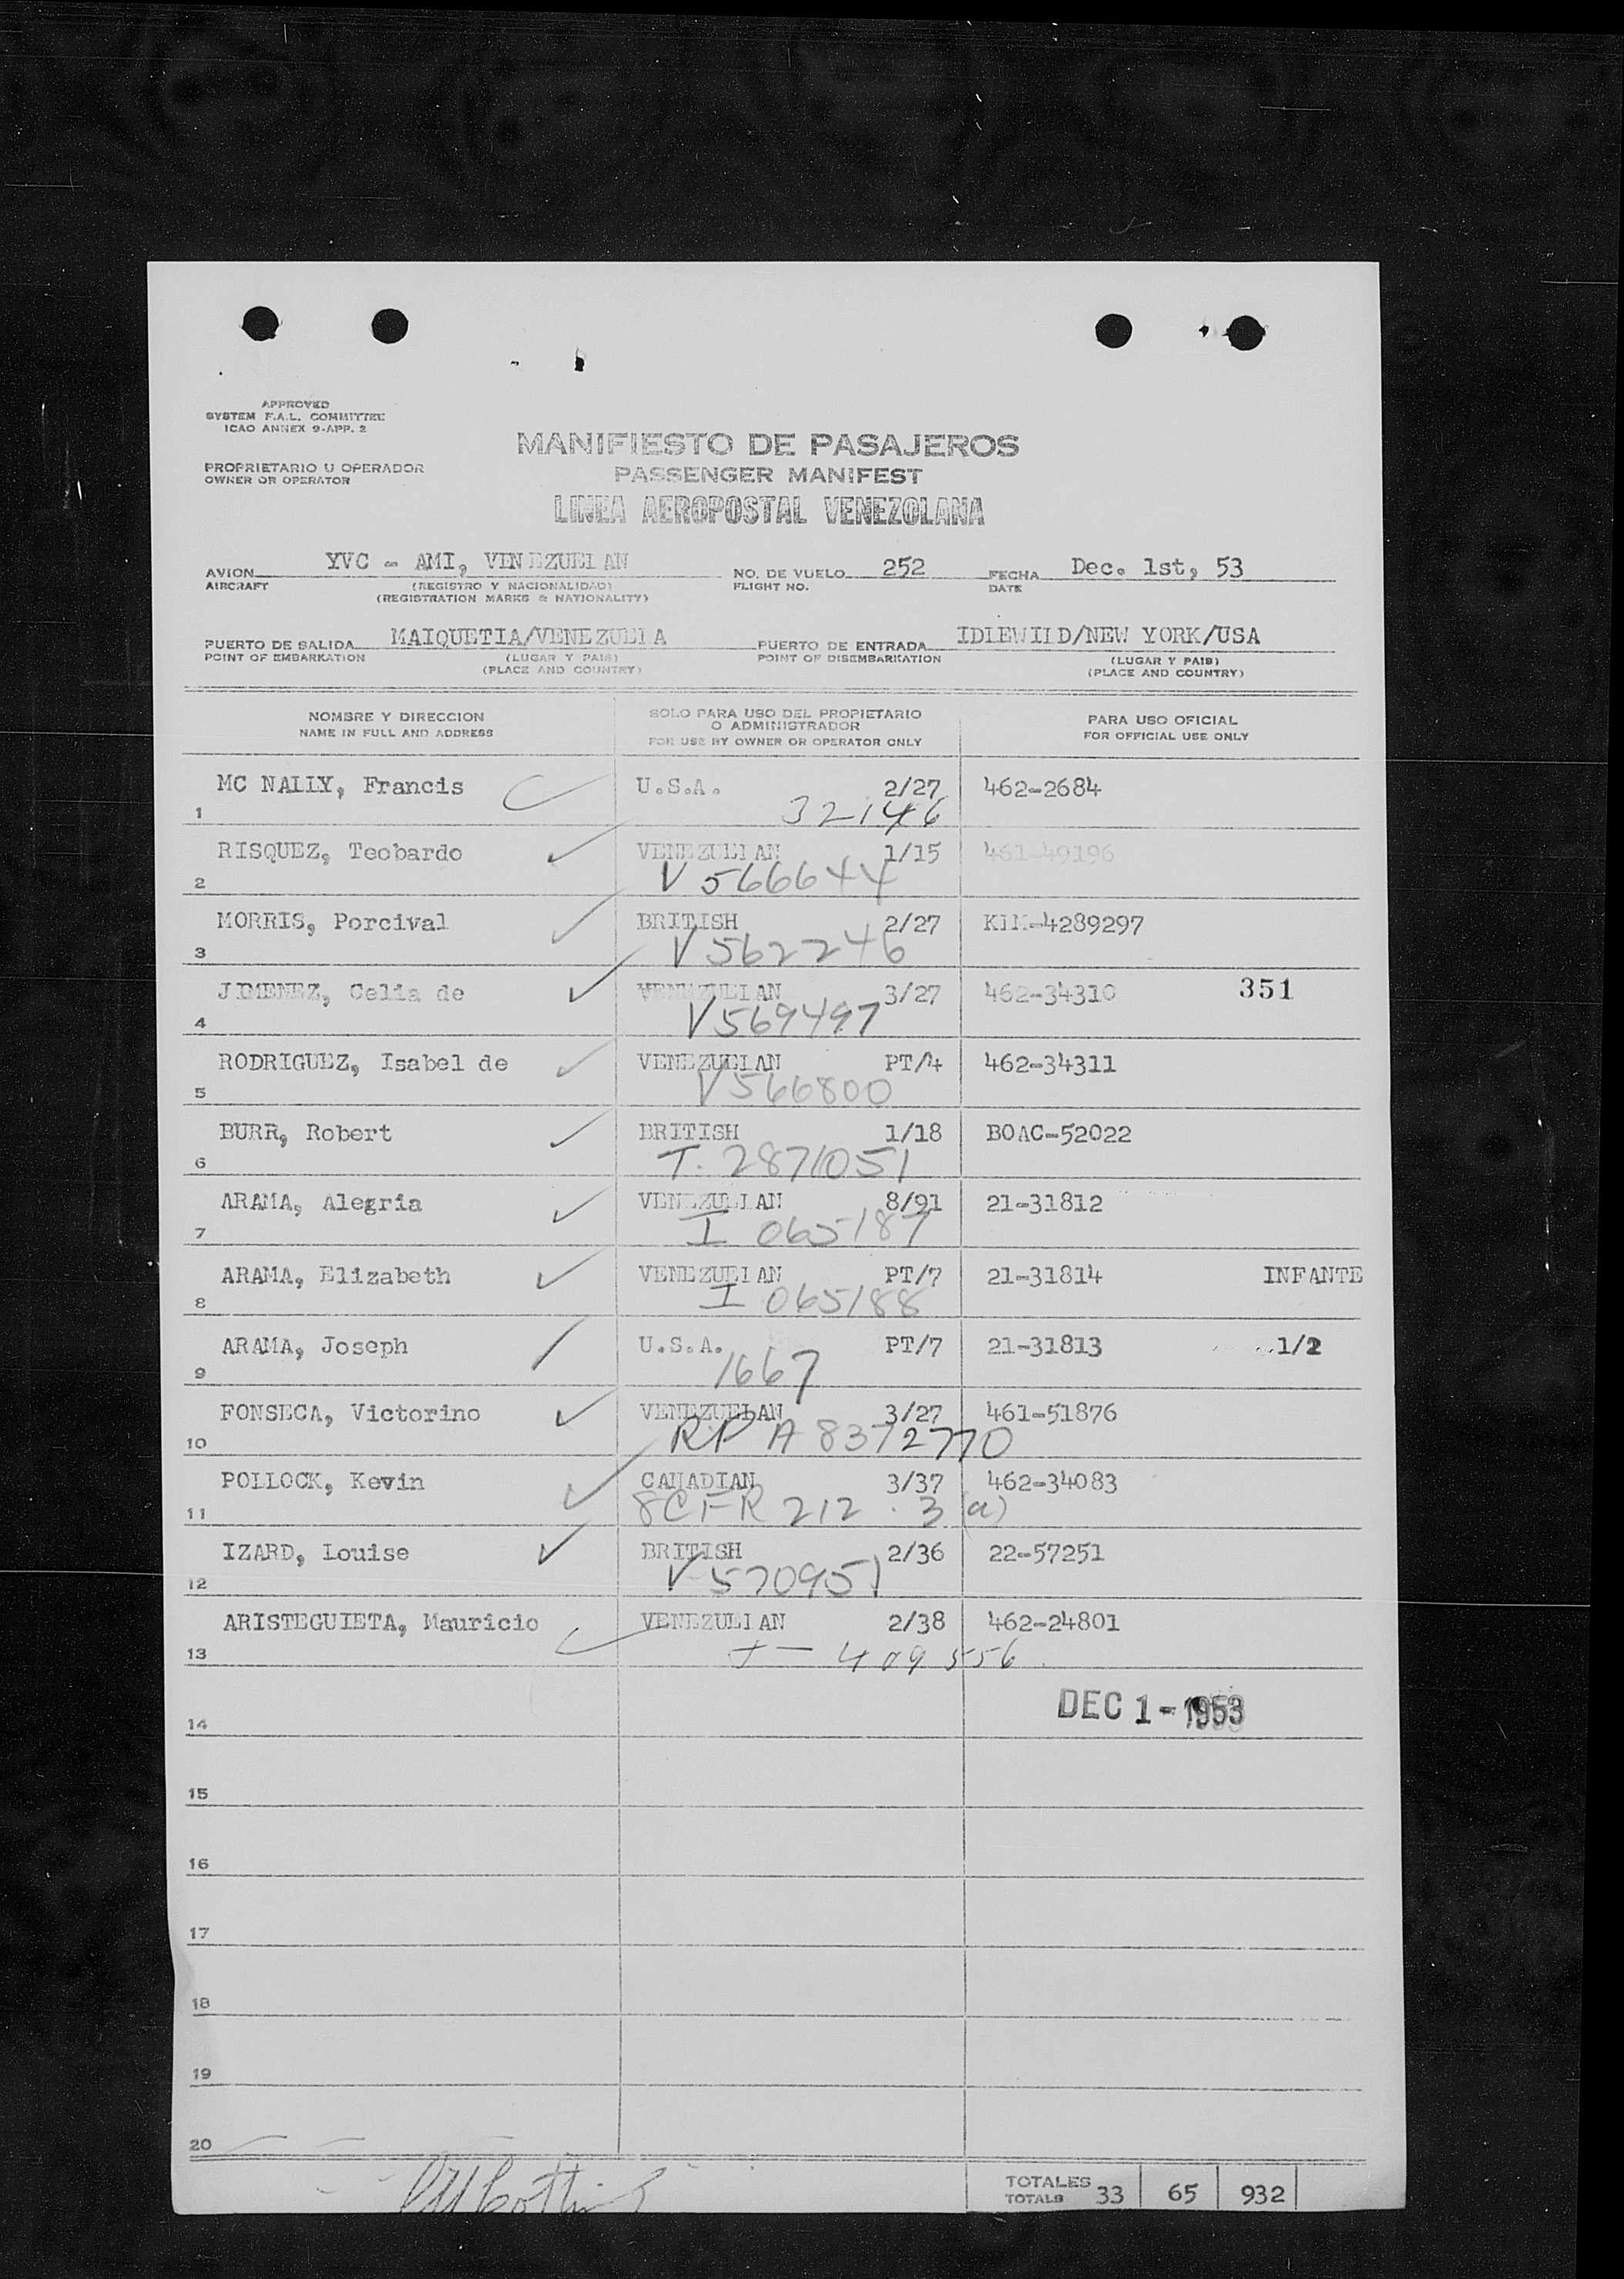 APPROVED
SYSTEM F.A.L. COMMITTEE
ICAO ANNEX 9-APP. 2
MANIFIESTO DE PASAJEROS
PROPRIETARIO U OPERADOR
OWNER OR OPERATOR
PASSENGER MANIFEST
LINEA AEROPOSTAL VENEZOLANA
AVION YVC - AMI, VINEZUELAN NO. DE VUELO 252 FECHA Dec. 1st, 53
AIRCRAFT (REGISTRO Y NACIONALIDAD) FLIGHT NO. DATE
(REGISTRATION MARKS & NATIONALITY)
PUERTO DE SALIDA MAIQUETIA/VENEZUELA PUERTO DE ENTRADA IDLEWILD/NEW YORK/USA
POINT OF EMBARKATION (LUGAR Y PAIS) POINT OF DISEMBARKATION (LUGAR Y PAIS)
(PLACE AND COUNTRY) (PLACE AND COUNTRY)
NOMBRE Y DIRECCION
NAME IN FULL AND ADDRESS
SOLO PARA USO DEL PROPIETARIO
O ADMINISTRADOR
FOR USE BY OWNER OR OPERATOR ONLY
PARA USO OFICIAL
FOR OFFICIAL USE ONLY
MC NALLY, Francis U.S.A. 2/27 462-2684
1 32146
RISQUEZ, Teobardo VENEZUELAN 1/15 461-49196
2 V 566644
MORRIS, Porcival BRITISH 2/27 KLM-4289297
3 V 562246
JIMENEZ, Celia de VENEZUELAN 3/27 462-34310 351
4 V569497
RODRIGUEZ, Isabel de VENEZUELAN PT/4 462-34311
5 V566800
BURR, Robert BRITISH 1/18 BOAC-52022
6 T. 2871051
ARAMA, Alegria VENEZUELAN 8/91 21-31812
7 I 065187
ARAMA, Elizabeth VENEZUELAN PT/7 21-31814 INFANTE
8 I 065188
ARAMA, Joseph U.S.A. PT/7 21-31813 1/2
9 1667
FONSECA, Victorino VENEZUELAN 3/27 461-51876
10 RP A 8372770
POLLOCK, Kevin CANADIAN 3/37 462-34083
11 8CFR 212.3(a)
IZARD, Louise BRITISH 2/36 22-57251
12 V570951
ARISTEGUIETA, Mauricio VENEZUELAN 2/38 462-24801
13 409556
14 DEC 1-1953
15
16
17
18
19
20
TOTALES
TOTALS 33 65 932